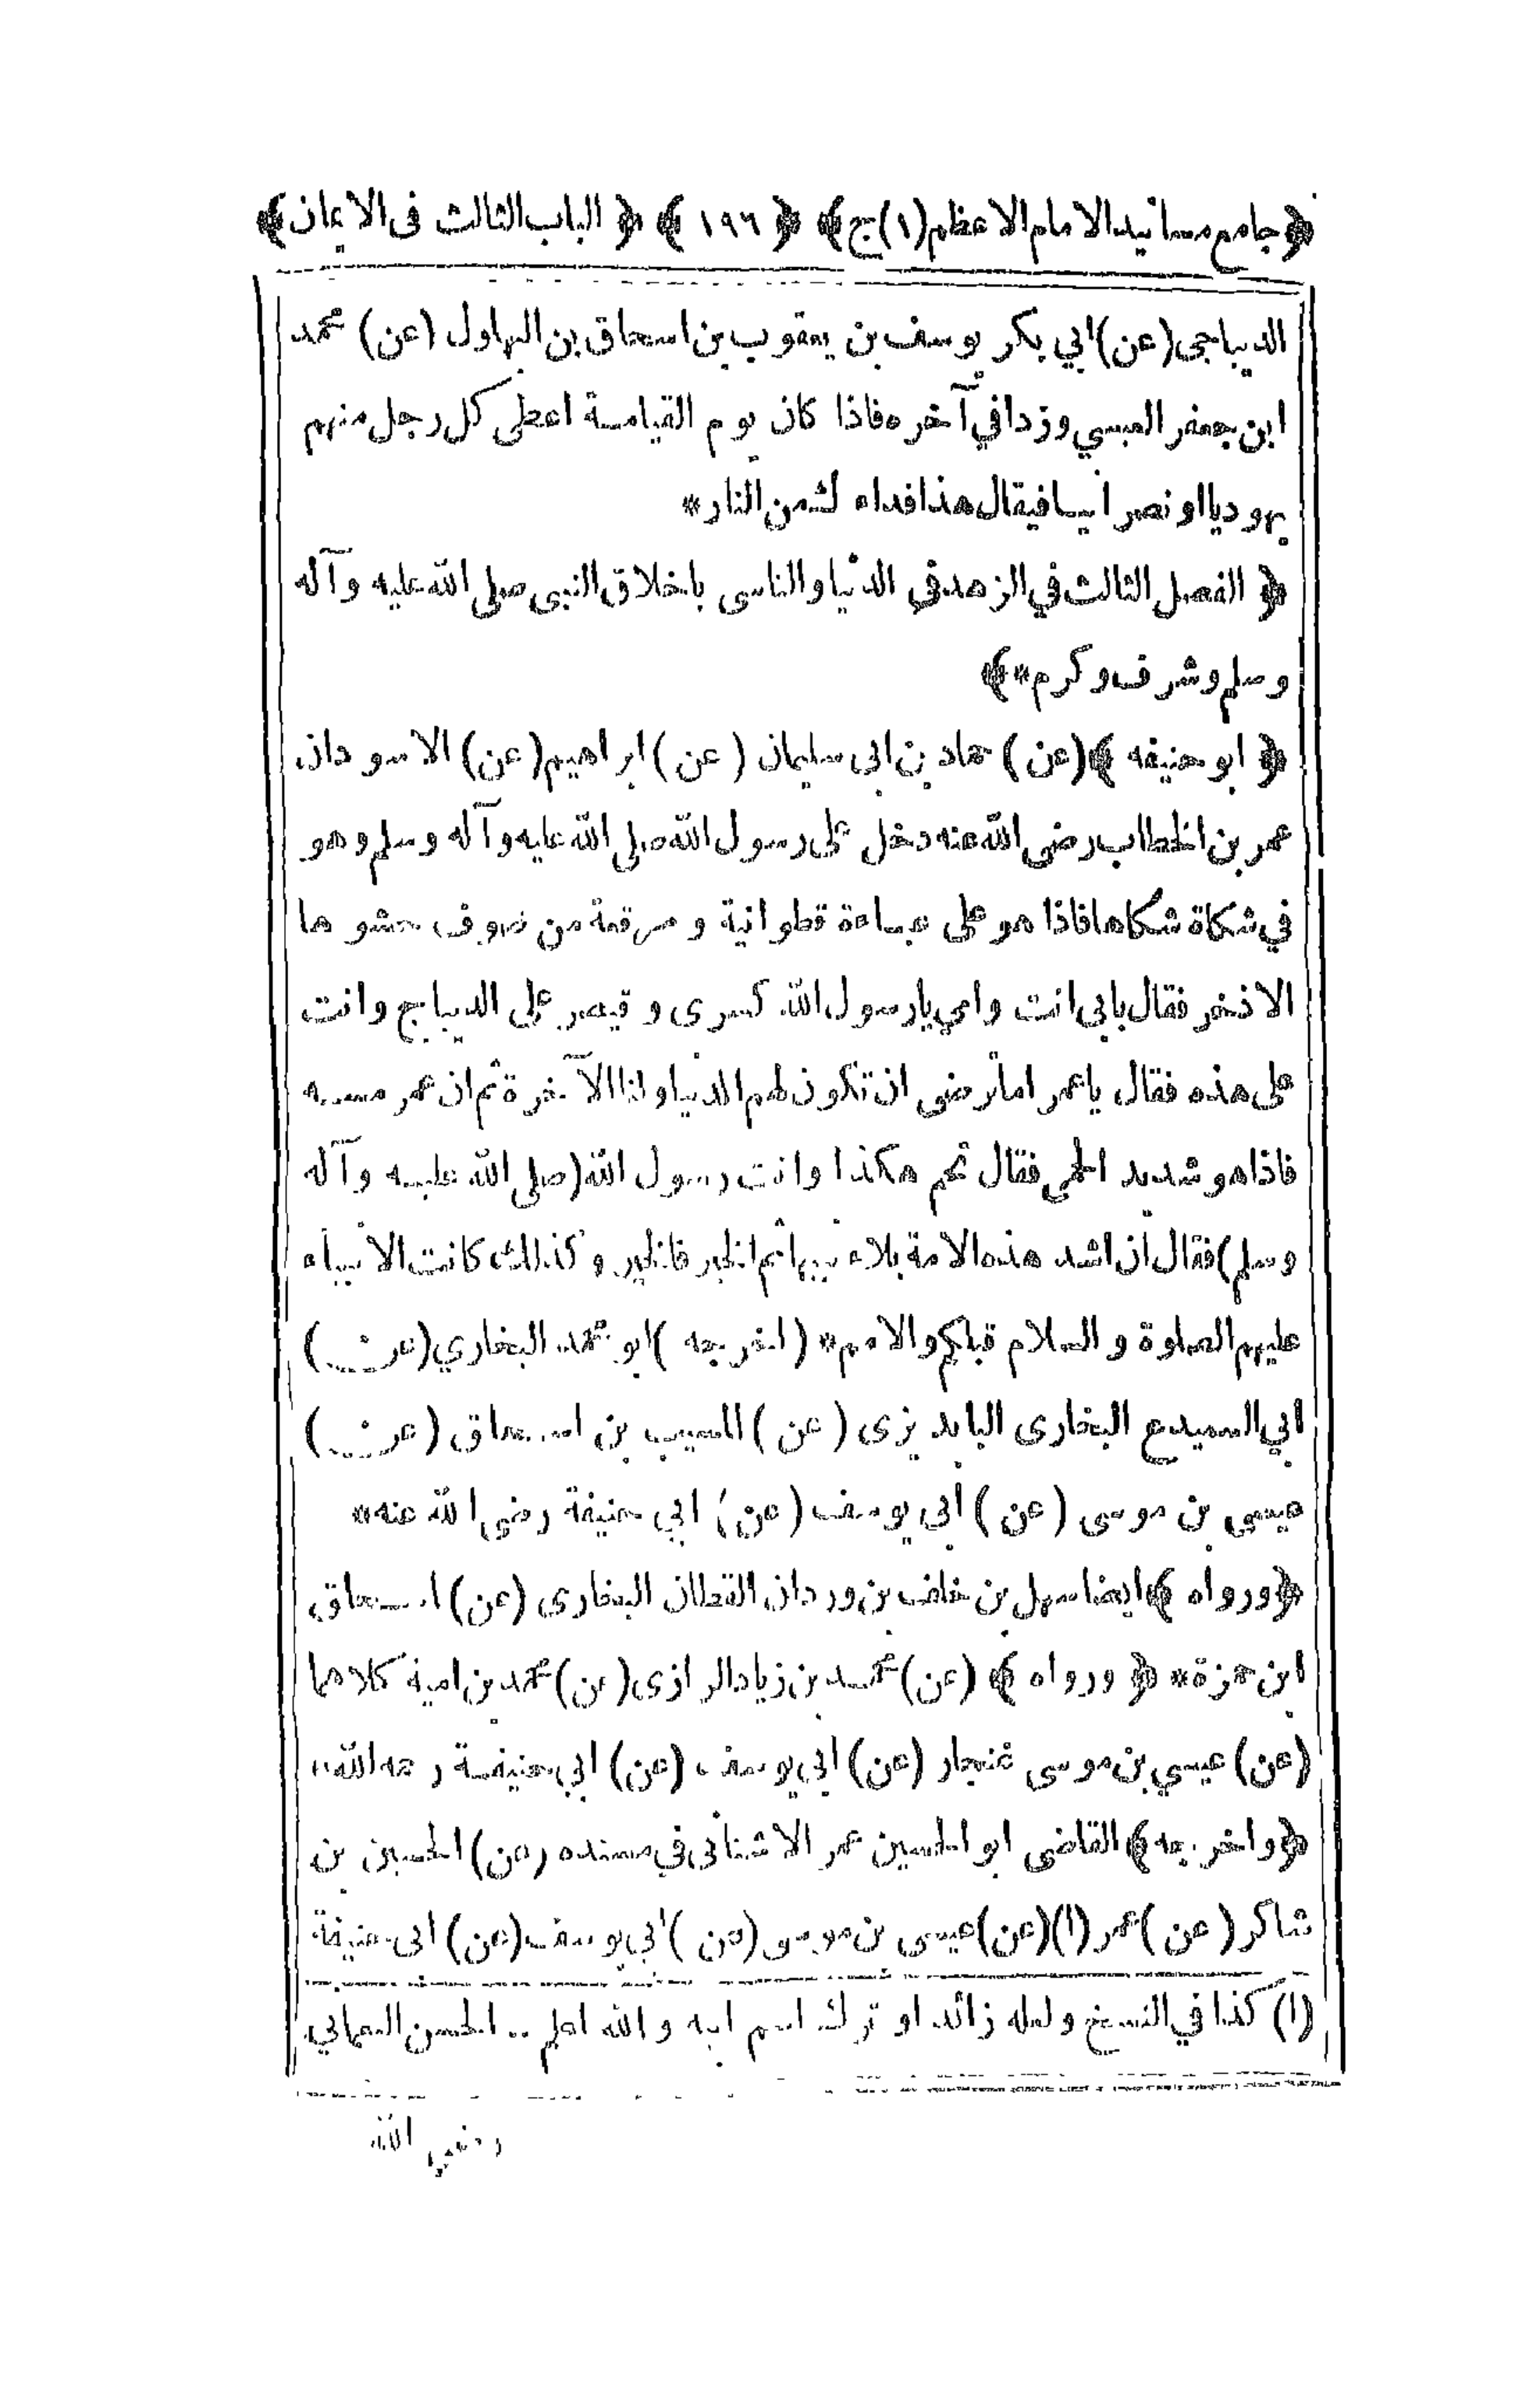 ﴿جامع مسانيد الامام الاعظم(١)ج﴾ ﴿ ١٩٦ ﴾ ﴿ الباب الثالث فى الايمان﴾
الديباجى(عن)ابي بكر يوسف بن يعقوب بن اسحاق بن البهلول (عن) محمد
ابن جعفر العبسي وزدا في آخره فاذا كان يوم القيامة اعطى كل رجل منهم
يهوديا او نصرانيا فيقال هذا فداء ك من النار*
﴿ الفصل الثالث في الزهد في الدنيا والتاسى باخلاق النبى صلى الله عليه وآله
وسلم وشرف وكرم*﴾
﴿ ابو حنيفه ﴾(عن) حماد بن ابى سليمان (عن) ابراهيم(عن) الاسود ان
عمر بن الخطاب رضى الله عنه دخل على رسول الله صلى الله عليه وآله وسلم وهو
في شكاة شكاها فاذا هو على عباءة قطوانية و مرقعة من صوف حشو ها
الاذخر فقال بابى انت وامي يا رسول الله كسرى و قيصر على الديباج وانت
على هذه فقال يا عمر اما ترضى ان تكون لهم الدنيا ولنا الآخرة ثم ان عمر مسه
فاذا هو شديد الحمى فقال تحم هكذا وانت رسول الله(صلى الله عليه وآله
وسلم)فقال ان اشد هذه الامة بلاء نبيها ثم الخير فالخير وكذلك كانت الانبياء
عليهم الصلوة و السلام قبلكم والامم* (اخرجه )ابو محمد البخاري(عن)
ابي السميدع البخارى البابد يزى (عن) المسيب بن اسحاق (عن)
عيسى بن موسى (عن) أبى يوسف (عن) ابي حنيفة رضى الله عنه*
﴿ورواه ﴾ايضا سهل بن خلف بن وردان القطان البخارى (عن) اسحاق
ابن حمزة* ﴿ ورواه ﴾ (عن)محمد بن زياد الرازى(عن)محمد بن امية كلاهما
(عن) عيسي بن موسى غنجار (عن) ابي يوسف (عن) ابي حنيفة رحمه الله*
﴿واخرجه﴾القاضى ابو الحسين عمر الاشنانى في مسنده (عن) الحسين بن
شاكر (عن)عمر(١)(عن)عيسى بن موسى (عن )ابي يوسف(عن) ابى حنيفة
(١) كذا في النسخ ولعله زائد او ترك اسم ابيه و الله اعلم .. الحسن النعماني
رضي الله